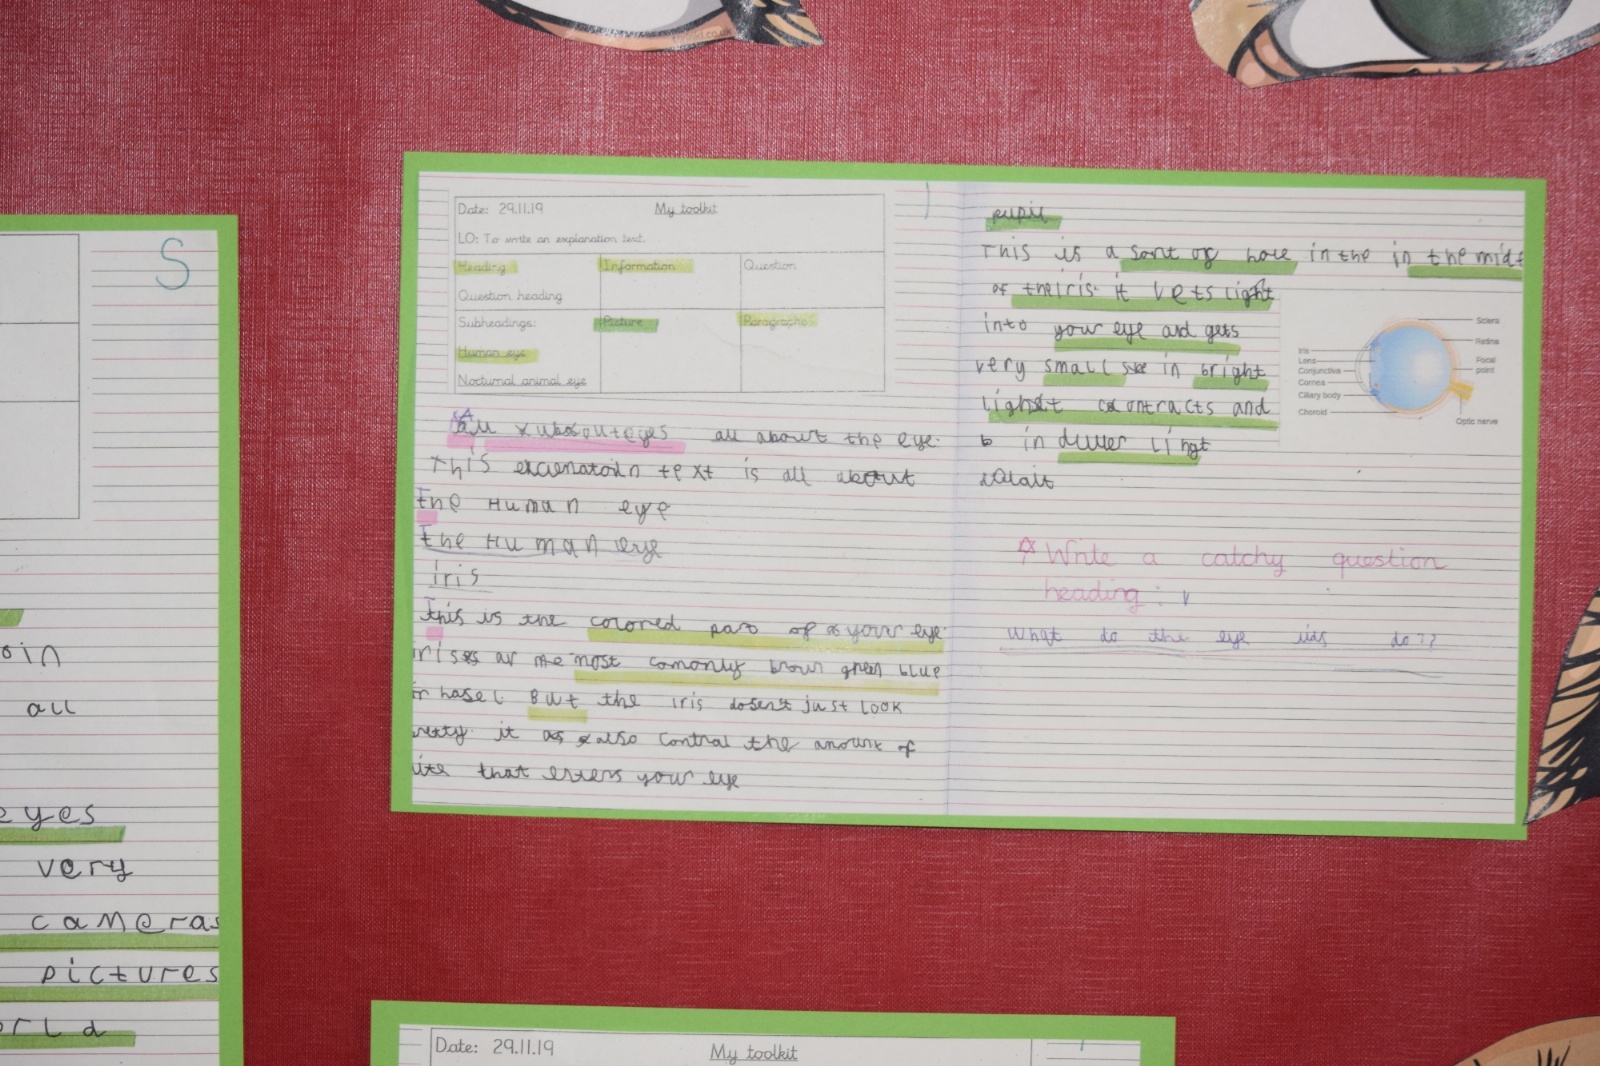 S
oin
all
eyes
very
cameras
pictures
orld
Date: 29.11.19 My toolkit
LO: To write an explanation text.
Heading Information Question
Question heading
Subheadings: Picture Paragraphs
Human eye
Nocturnal animal eye
all about the eye.
This text is all about
the Human eye
the Human eye
iris
this is the colored part of your eye.
irises ar the most comonly brown green blue
or hasel. But the iris dosen't just look
it also control the amount of
that enters your eye
pupil
This is a sort of hole in the in the midd
of the iris. it lets light
into your eye and gets
very small in bright
light contracts and
in duller light
Iris
Lens
Conjunctiva
Cornea
Ciliary body
Choroid
Sclera
Retina
Focal
point
Optic nerve
Write a catchy question
heading:
What do the eye lids do??
Date: 29.11.19 My toolkit